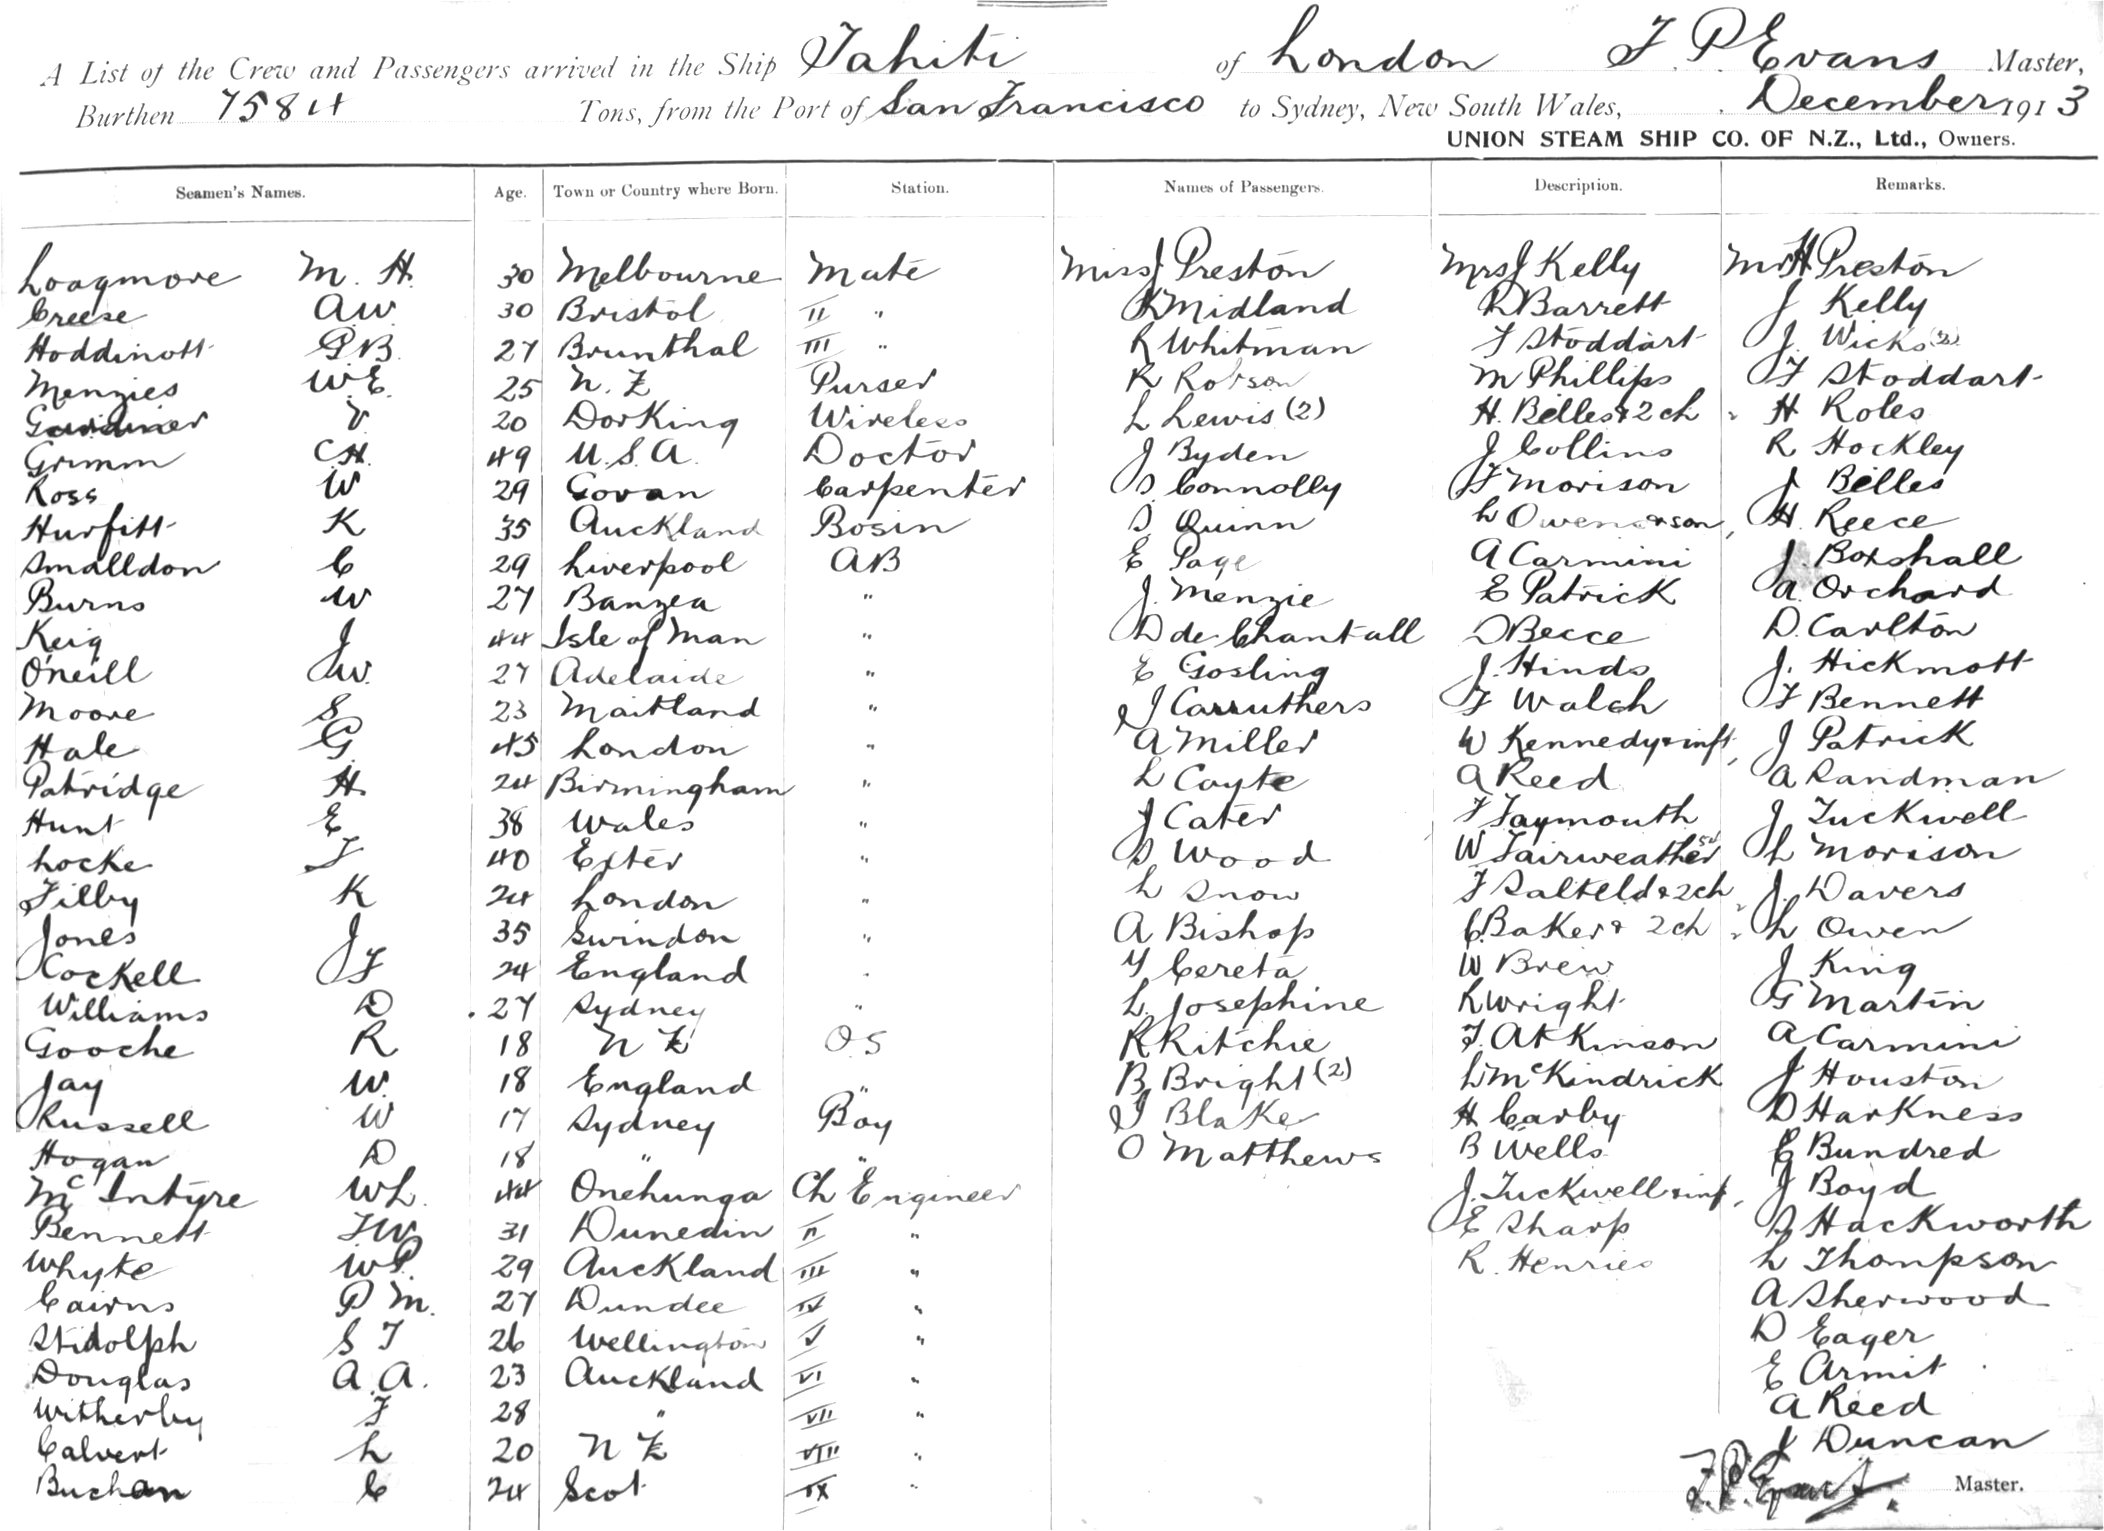 A List of the Crew and Passengers arrived in the Ship Tahiti of London F. P. Evans Master,
Burthen 7584 Tons, from the Port of San Francisco to Sydney, New South Wales, December 1913
UNION STEAM SHIP CO. OF N.Z., Ltd., Owners.
Seamen's Names. Age. Town or Country where Born. Station. Names of Passengers. Description. Remarks.
Loagmore M. H. 30 Melbourne Mate Miss J Preston Mrs J Kelly Mr H Preston
Creese A.W. 30 Bristol II " K Midland R Barrett J Kelly
Hoddinott P.B. 27 Brunthal III " R Whitman F Stoddart J. Wicks (2)
Menzies W.E. 25 N. Z Purser R Robson M Phillips F Stoddart
V 20 DorKing Wireless L Lewis (2) H. Belles & 2 ch " H Roles
Grimm C.H. 49 U.S.A. Doctor J Byden J Collins R Hockley
Ross W 29 Govan Carpenter S. Connolly F Morison J Belles
Hurfitt K 35 Auckland Bosin S. Quinn L Owen & son, H. Reece
Smalldon C 29 Liverpool AB E Page A Carmini J. Boxshall
Burns W 27 Banzea " J. Menzie E Patrick A. Orchard
Keig J 44 Isle of Man " D de Chantall D Becce D. Carlton
O'neill J.W. 27 Adelaide " E Gosling J. Hinds J. Hickmott
Moore S 23 Maitland " J Carruthers F Walsh F Bennett
Hale G 45 London " A Miller W Kennedy & inft, J Patrick
Patridge H. 24 Birmingham " L Coyte A Reed A Sandman
Hunt E 38 Wales " J Cater F Faymouth J Tuckwell
Locke F 40 Exter " S Wood W Fairweather L Morison
Filby K 24 London " L Snow F Salkeld & 2ch " J. Davers
Jones J 35 Swindon " A Bishop C. Baker & 2 ch " L Owen
Cockell J F 24 England " Y Cereta W Brew J King
Williams D 27 Sydney " L. Josephine R Wright G Martin
Gooche R 18 N Z O.S R Ritchie F. Atkinson A Carmini
Jay W. 18 England " B Bright (2) L McKindrick J Houston
Russell W 17 Sydney Boy J Blake H Carby D Harkness
Hogan D 18 " " O Matthews B Wells E Bundred
McIntyre W L. 44 Onehunga Ch Engineer J. Tuckwell & inf, J Boyd
Bennett F W 31 Dunedin II " E Sharp S Hackworth
Whyte W P. 29 Auckland III " R. Henries L Thompson
Cairns P M. 27 Dundee IV " A Sherwood
Stidolph S T 26 Wellington V " D Eager
Douglas A. A. 23 Auckland VI " E Armit
Witherby F 28 " VII " A Reed
Calvert L 20 N Z VIII " J Duncan
Buchan C 24 Scot IX " F. P. Evans Master.